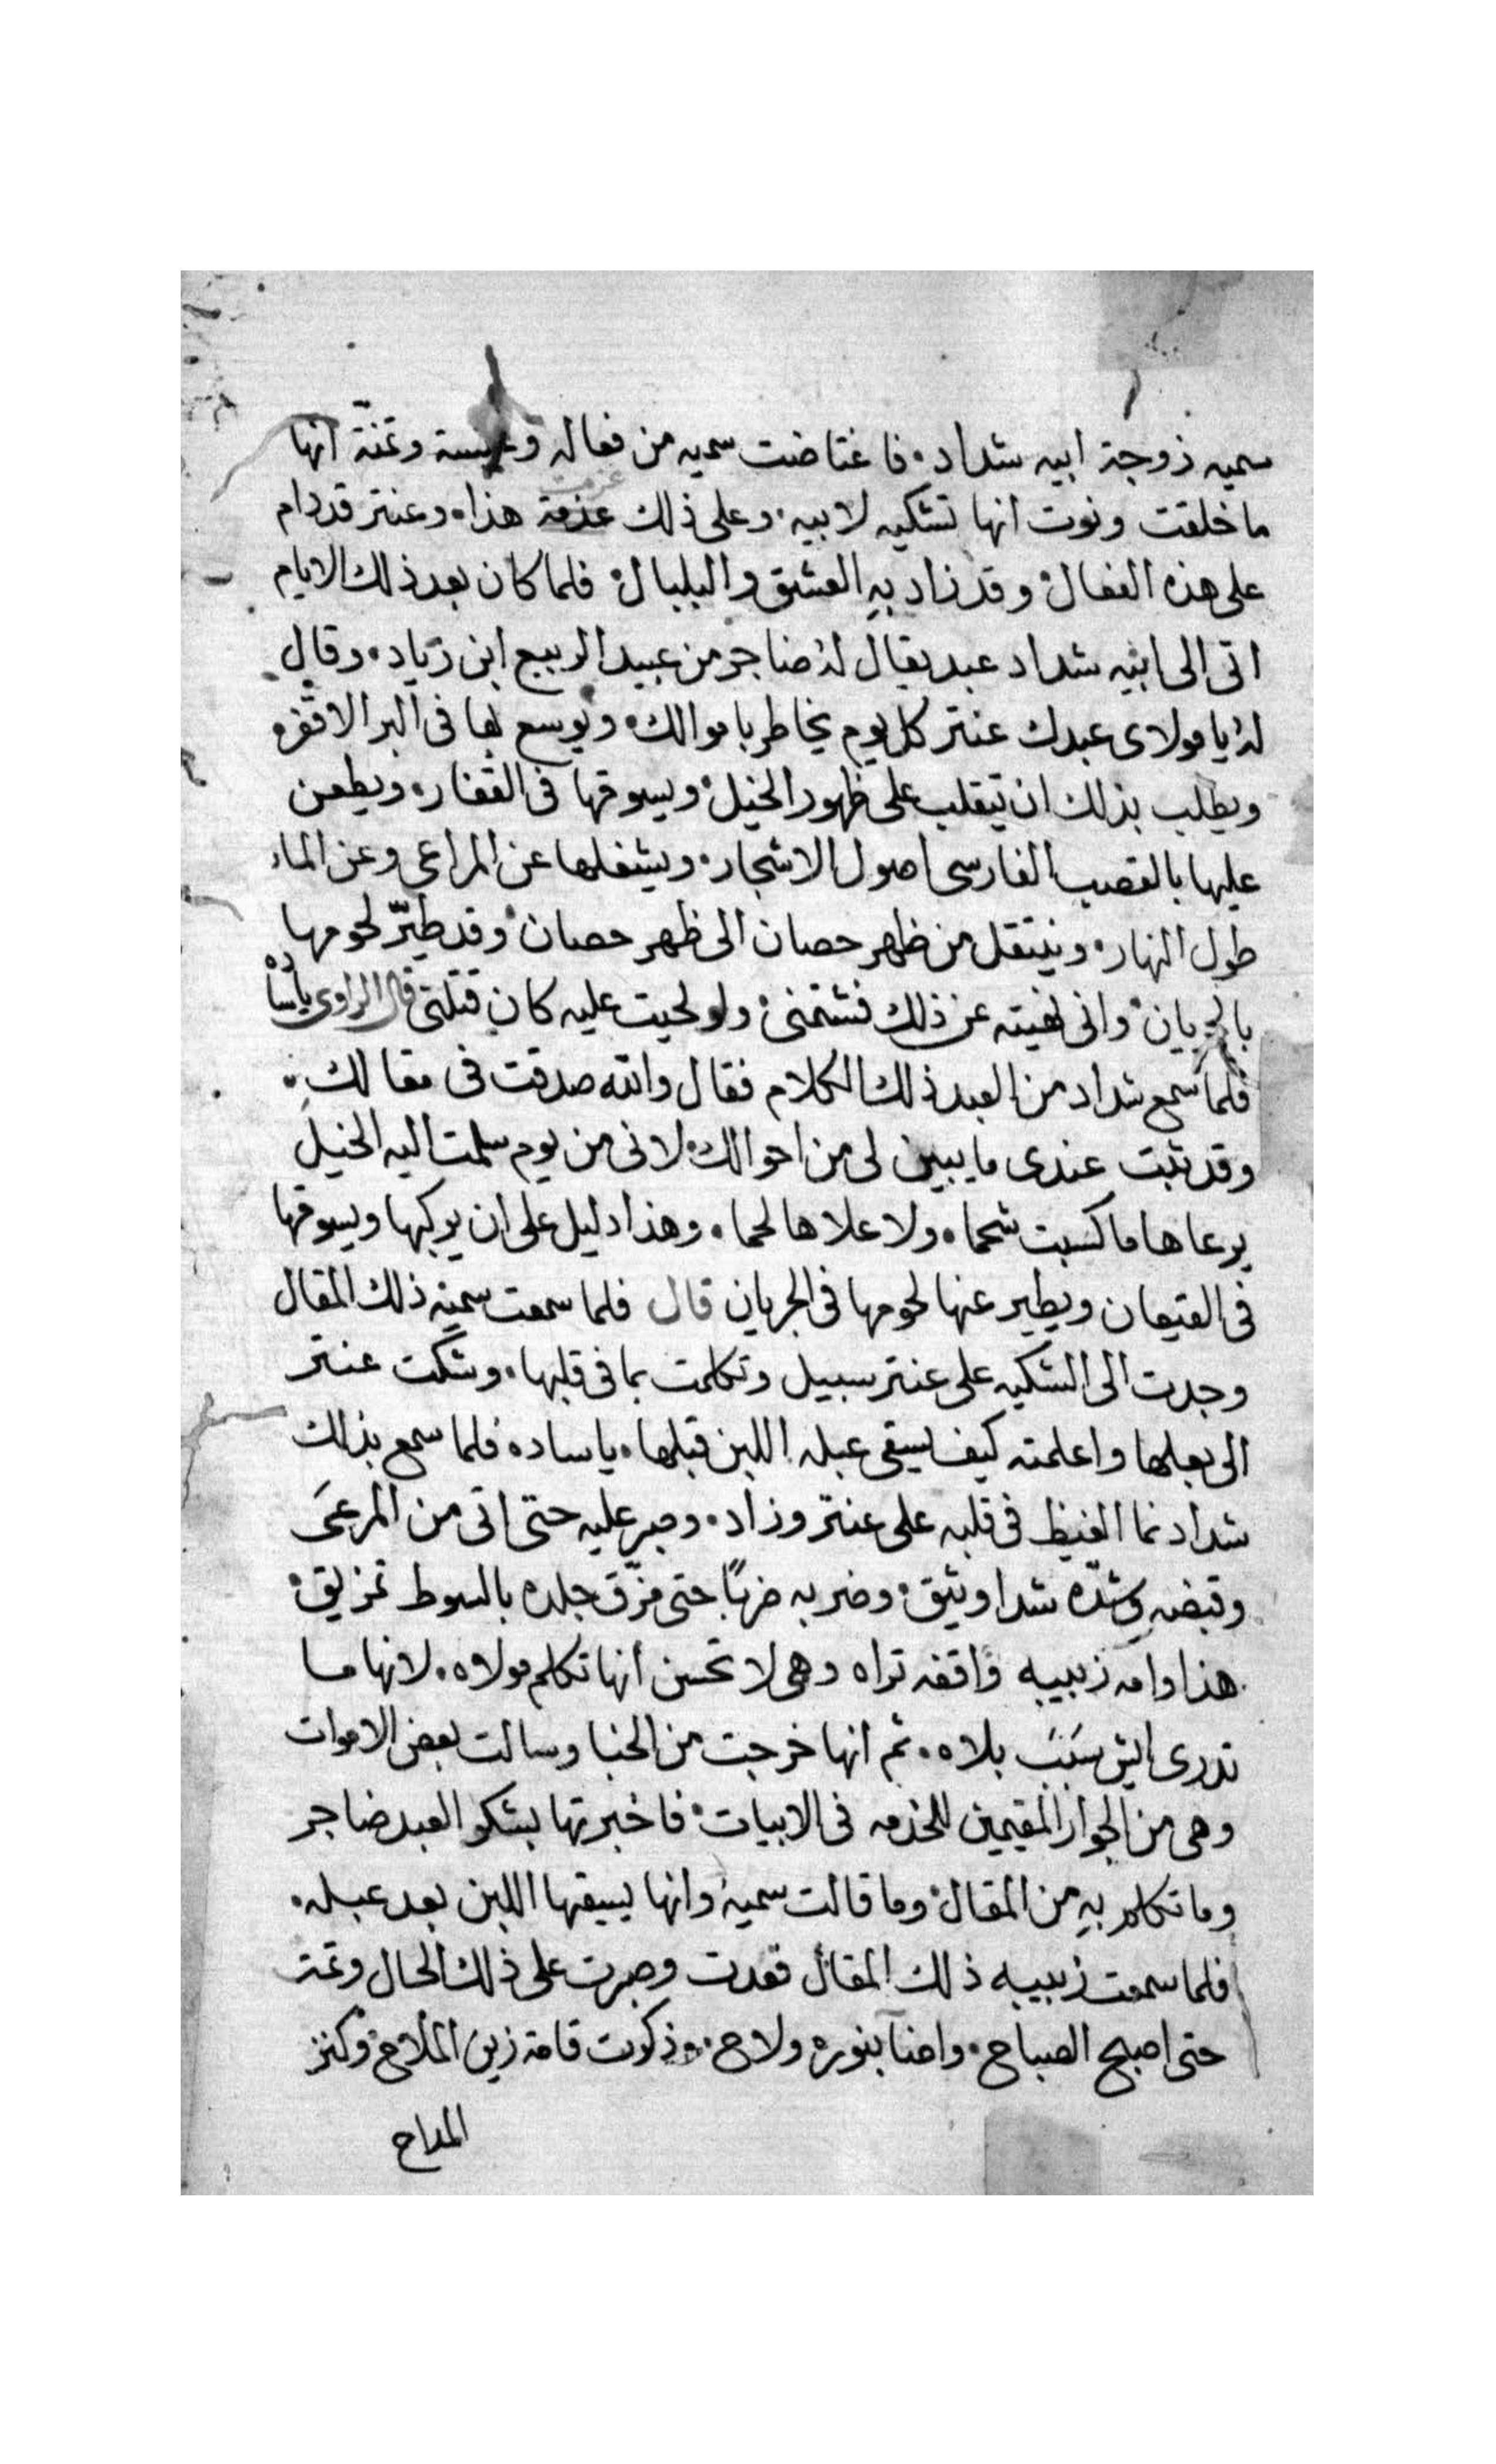 سميه زوجة ابيه شداد. فاغتاضت سميه من فعاله وعبسة وتمنة انها
ما خلقت ونوت انها تشكيه لابيه. وعلى ذلك عزمة عزمت هذا. وعنتر قد دام
على هذه الفعال. وقد زاد به العشق والبلبال. فلما كان بعد ذلك الايام
اتى الى ابيه شداد عبد يقال له ضاجر من عبيد الربيع ابن زياد. وقال
له يا مولاى عبدك عنتر كل يوم يخاطر باموالك. ويوسع بها فى البر الاقفره
ويطلب بذلك ان يتقلب على ظهور الخيل. ويسوقها فى القفار. ويطعن
عليها بالقصب الفارسى اصول الاشجار. ويشغلها عن المراعى وعن الماء
طول النهار. وينتقل من ظهر حصان الى ظهر حصان. وقد طيّر لحومها
بالجريان. وانى نهيته عن ذلك فشتمنى. ولو لحيت عليه كان قتلتى قال الراوى ياساده
فلما سمع شداد من العبد ذلك الكلام فقال والله صدقت فى مقالك.
وقد تبت عندى ما يبين لى من احوالك. لانى من يوم سلمت اليه الخيل
يرعاها ما كسبت شحما. ولا علاها لحما. وهذا دليل على ان يركبها ويسوقها
فى القيعان ويطير عنها لحومها فى الجريان قال فلما سمعت سميه ذلك المقال
وجدت الى الشكيه على عنتر سبيل وتكلمت بما فى قلبها. وشكت عنتر
الى بعلها واعلمته كيف يسقى عبله اللبن قبلها. ياساده فلما سمع بذلك
شداد نما الغيظ فى قلبه على عنتر وزاد. وصبر عليه حتى اتى من المرعَى
وقبضه وشدّه شدا وثيق. وضربه ضربًا حتى مزّق جلده بالسوط تمزيق.
هذا وامه زبيبه واقفه تراه وهى لا تحسن انها تكلم مولاه. لانها ما
تدرى ايش سَبَبَ بلاه. ثم انها خرجت من الخبا وسالت بعض الاموات
وهى من الجوار المقيمين للخدمه فى الابيات. فاخبرتها بشكو العبد ضاجر
وما تكلم بهِ من المقال. وما قالت سميه وانها يسقها اللبن بعد عبله.
فلما سمعت زبيبه ذلك المقال قعدت وصبرت على ذلك الحال وتمت
حتى اصبح الصباح. واضا بنوره ولاح. وذكرت قامة زين الملاح وكنز
المداح